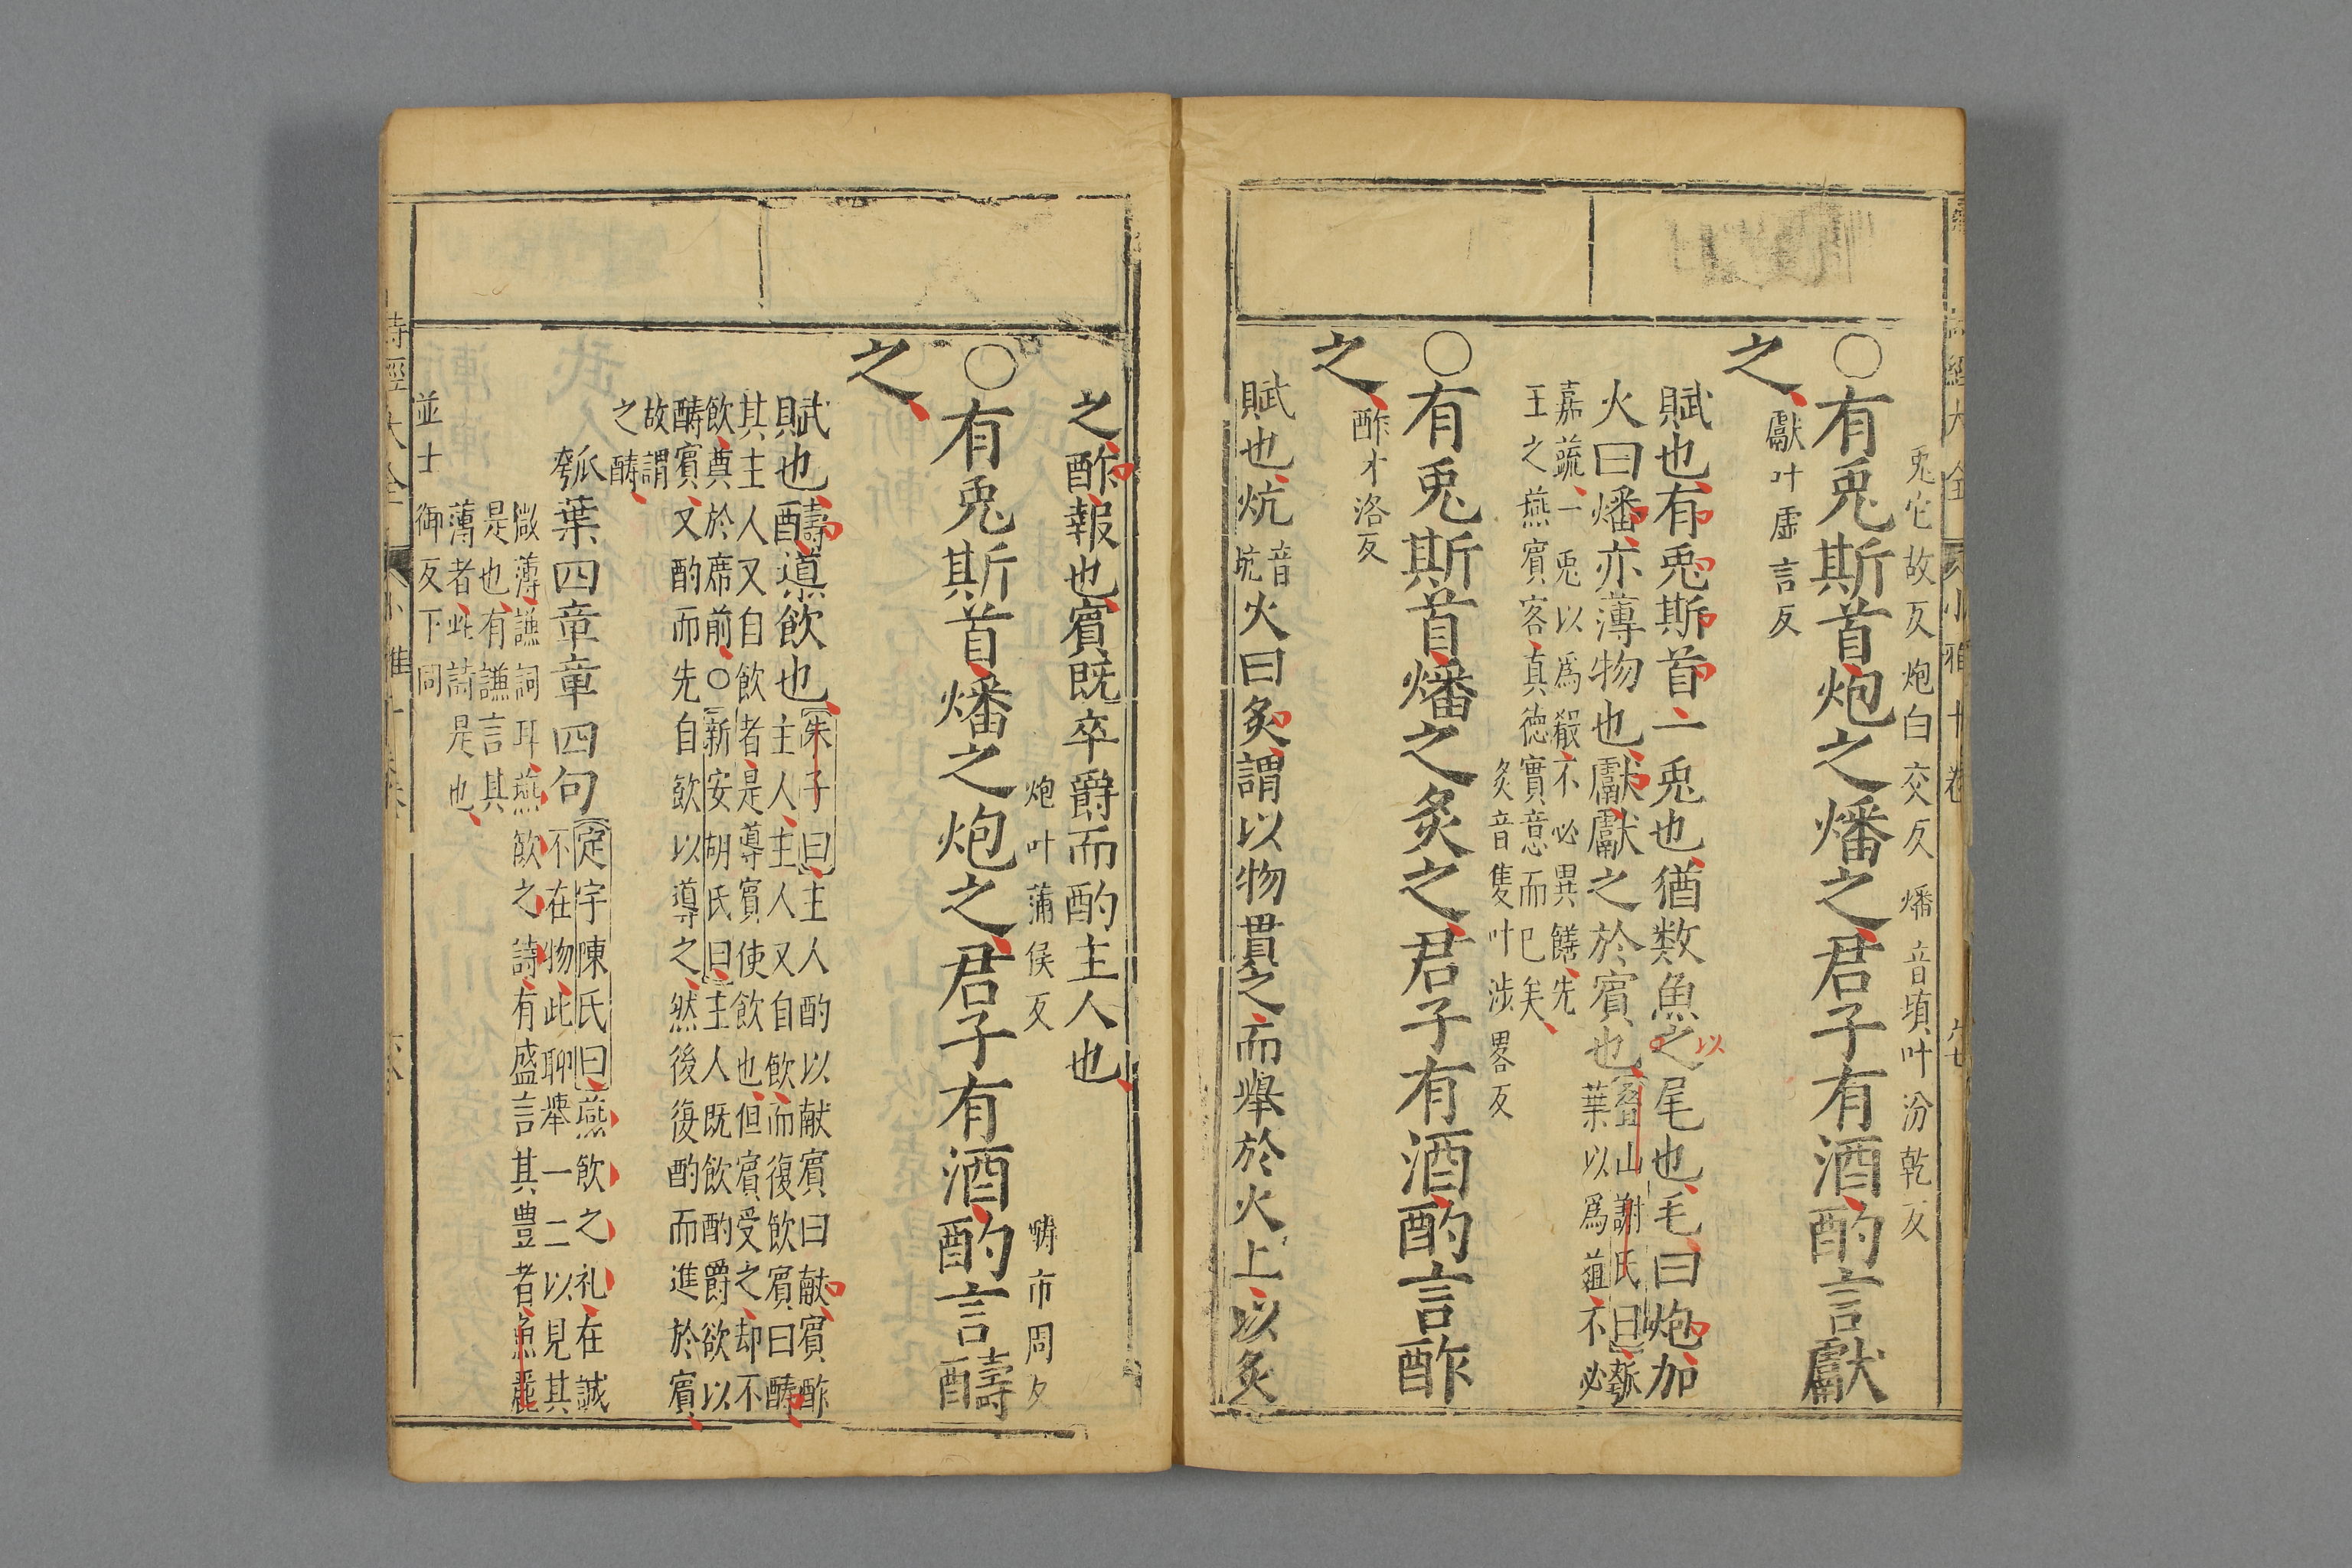 詩經大全 小雅十卷
兎它故反 炮白交反 燔音墳叶汾乾反
○有兎斯首炮之燔之君子有酒酌言獻
之
獻叶虛言反
賦也有兎斯首一兎也猶数魚之以尾也毛曰炮加
火曰燔亦薄物也獻獻之於賓也
疊山謝氏曰瓠
葉以爲葅不必
嘉蔬一兎以爲殽不必異饍先
王之燕賓客真德實意而已矣
炙音隻叶涉畧反
○有兎斯首燔之炙之君子有酒酌言酢
之
酢才洛反
賦也炕音
炕火曰炙謂以物貫之而舉於火上以炙
之酢報也賓既卒爵而酌主人也
炮叶蒲侯反 醻市周反
○有兎斯首燔之炮之君子有酒酌言醻
之
賦也醻導飲也
朱子曰主人酌以献賓曰献賓酢
主人主人又自飲而復飲賓曰醻
其主人又自飲者是導賓使飲也但賓受之却不
飲奠於席前○新安胡氏曰主人既飲酌爵欲以
醻賓又酌而先自飲以導之然後復酌而進於賓
故謂
之醻
瓠葉四章章四句
定宇陳氏曰燕飲之礼在誠
不在物此聊舉一二以見其
微薄謙詞耳燕飲之詩有盛言其豊者魚麗
是也有謙言其
薄者此詩是也
並士御反下同
詩經大全 小雅十卷